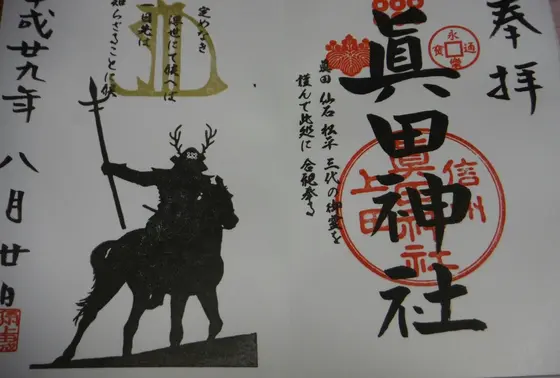 奉拝
永樂通寳
眞田神社
信州
上田
眞田神社
眞田 仙石 松平 三代の御霊を
謹んで此処に 合祀奉る
定めなき
浮世にて候へば
一日先は
知らざることに候
平成廿九年 八月廿日